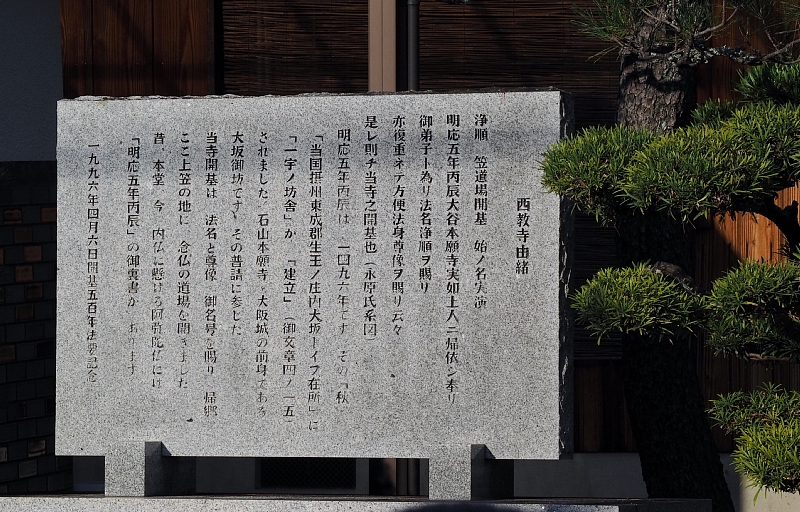 西教寺由緒
浄順 笠道場開基 始ノ名実演
明応五年丙辰大谷本願寺実如上人ニ帰依シ奉リ
御弟子ト為リ法名浄順ヲ賜リ
亦復重ネテ方便法身尊像ヲ賜リ云々
是レ則チ当寺之開基也(永原氏系図)
明応五年丙辰は 一四九六年です その「秋
「当国摂州東成郡生玉ノ庄内大坂トイフ在所」に
「一宇ノ坊舎」が 「建立」(御文章四ノ一五)
されました 石山本願寺・大阪城の前身である
大坂御坊です その普請に参じた
当寺開基は 法名と尊像 御名号を賜り 帰郷
ここ上笠の地に 念仏の道場を開きました
昔、本堂 今 内仏に懸ける阿弥陀仏には
「明応五年丙辰」の御裏書が あります
一九九六年四月六日開基五百年法要記念